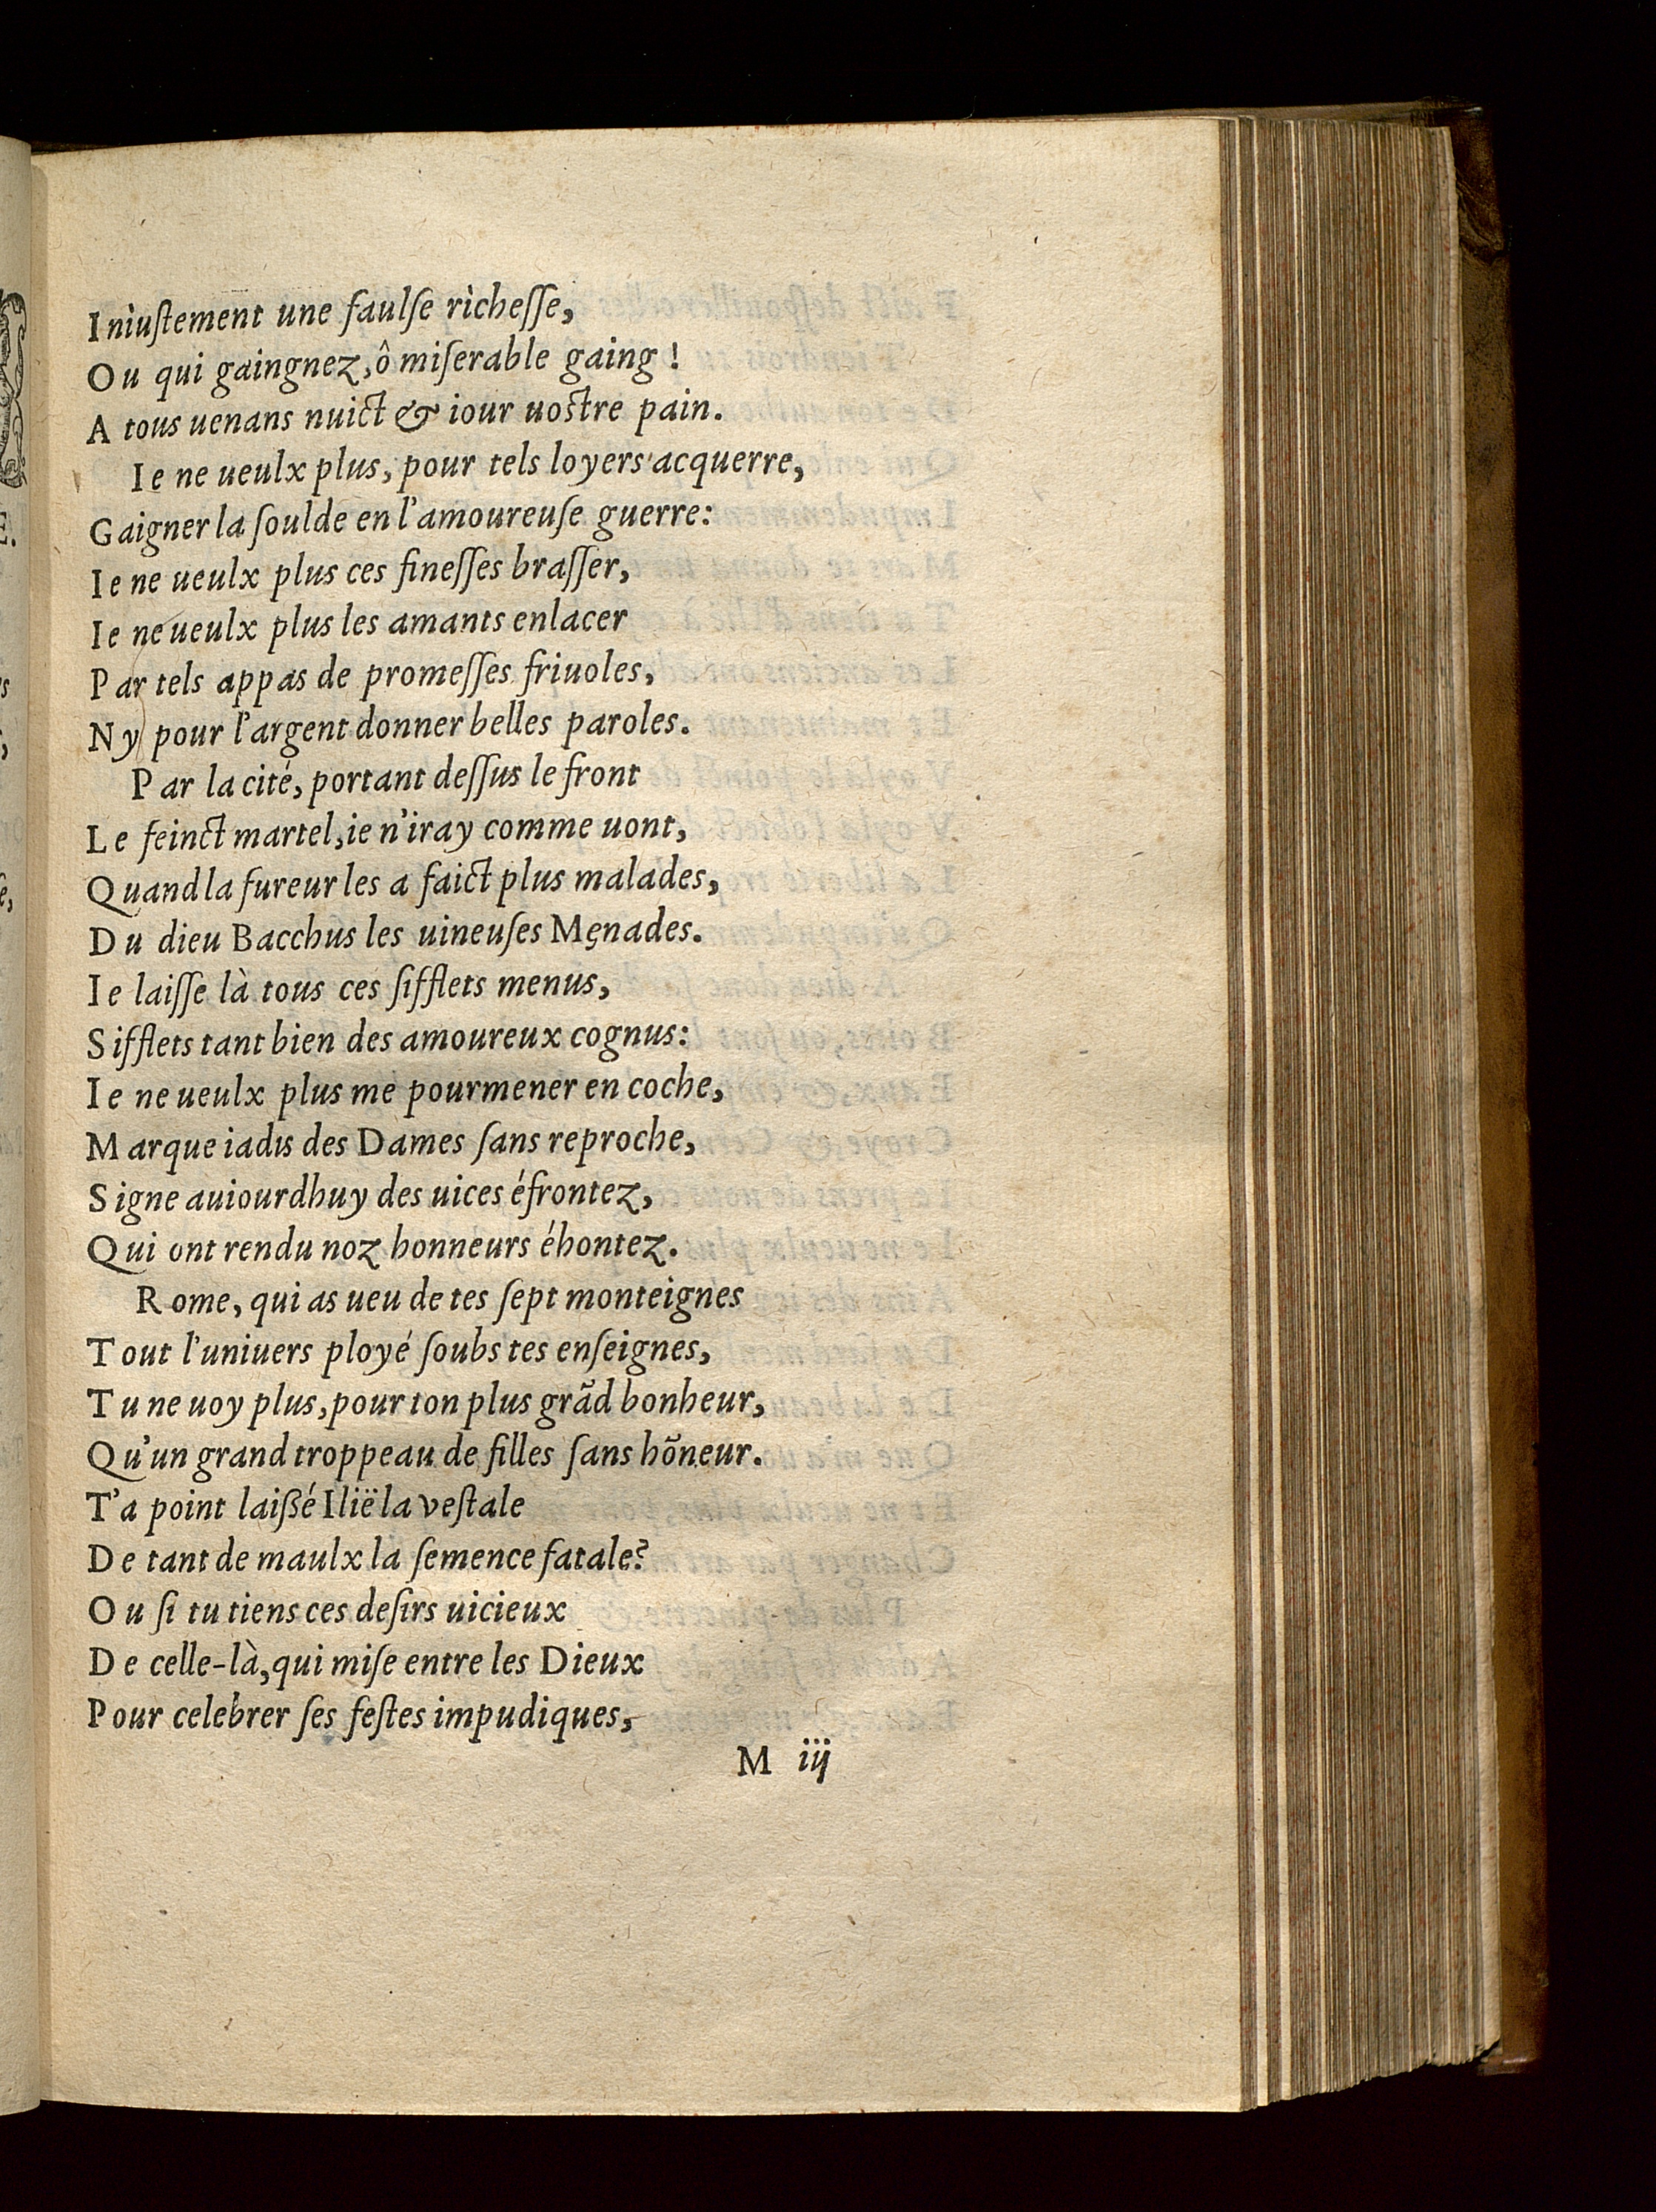 Iniuſtement une faulſe richeſſe,
Ou qui gaingnez, ô miſerable gaing !
A tous uenans nuict & iour uoſtre pain.
Ie ne ueulx plus, pour tels loyers acquerre,
Gaigner la ſoulde en l'amoureuſe guerre:
Ie ne ueulx plus ces fineſſes braſſer,
Ie ne ueulx plus les amants enlacer
Par tels appas de promeſſes friuoles,
Ny pour l'argent donner belles paroles.
Par la cité, portant deſſus le front
Le feinct martel, ie n'iray comme uont,
Quand la fureur les a faict plus malades,
Du dieu Bacchus les uineuſes Męnades.
Ie laiſſe là tous ces ſifflets menus,
Sifflets tant bien des amoureux cognus:
Ie ne ueulx plus me pourmener en coche,
Marque iadis des Dames ſans reproche,
Signe auiourdhuy des uices éfrontez,
Qui ont rendu noz honneurs éhontez.
Rome, qui as ueu de tes ſept monteignes
Tout l'uniuers ployé ſoubs tes enſeignes,
Tu ne uoy plus, pour ton plus grãd bonheur,
Qu'un grand troppeau de filles ſans hõneur.
T'a point laißé Ilië la veſtale
De tant de maulx la ſemence fatale?
Ou ſi tu tiens ces deſirs uicieux
De celle-là, qui miſe entre les Dieux
Pour celebrer ſes feſtes impudiques,
M iij